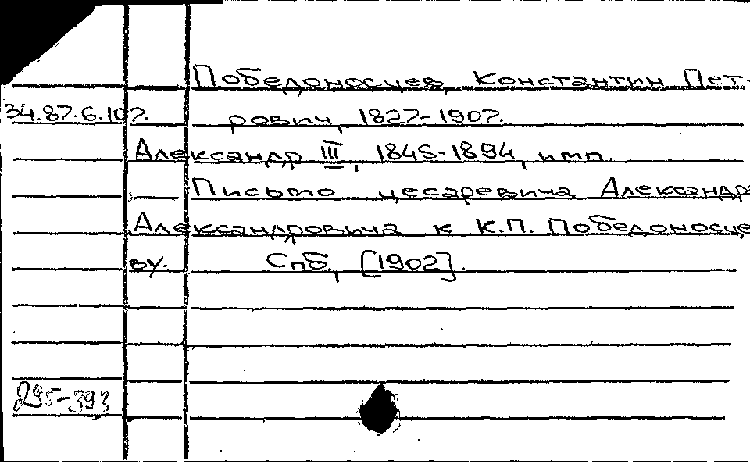 Победоносцев, Константин Пет-
34.87.6.107. рович, 1827-1907.
Александр III, 1845-1894, имп.
Письмо цесаревича Александра
Александровича к К.П. Победоносце-
ву. Спб, [1902].
295-393